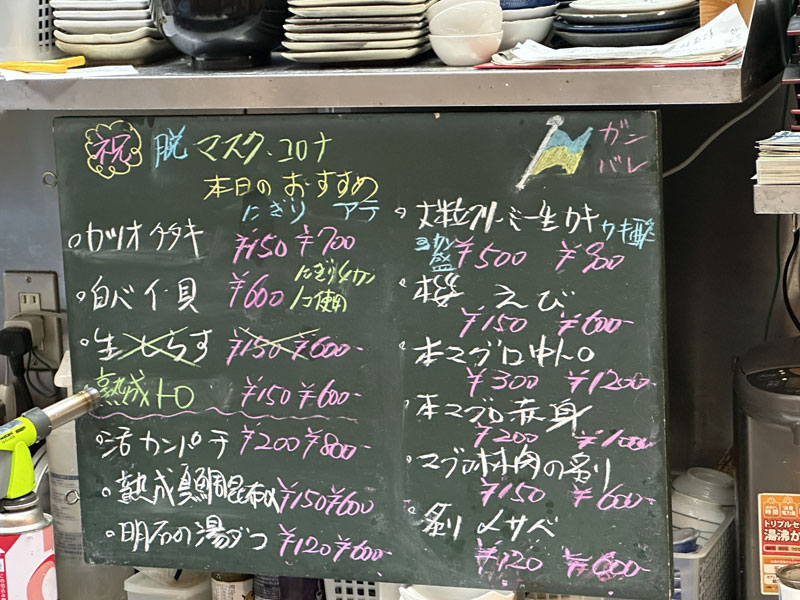 祝 脱 マスク、コロナ
ガンバレ
本日の おすすめ
にぎり アテ
カツオタタキ ¥150 ¥700
白バイ貝 ¥600 にぎり4カン 1コ使用
生しらす ¥150 ¥600-
熟成トロ ¥150 ¥600-
活カンパチ ¥200 ¥800-
熟成真鯛昆布〆 ¥150 ¥600
明石の湯ダコ ¥120 ¥600-
大粒クリーミー生カキ カキ酢
3カン盛 ¥500 ¥900
えび
¥150 ¥600-
本マグロ中トロ
¥300 ¥1200-
本マグロ赤身
¥200 ¥1000
マグロホホ肉の炙り
¥150 ¥600-
炙り〆サバ
¥120 ¥600-
トリプルセ
湯沸か